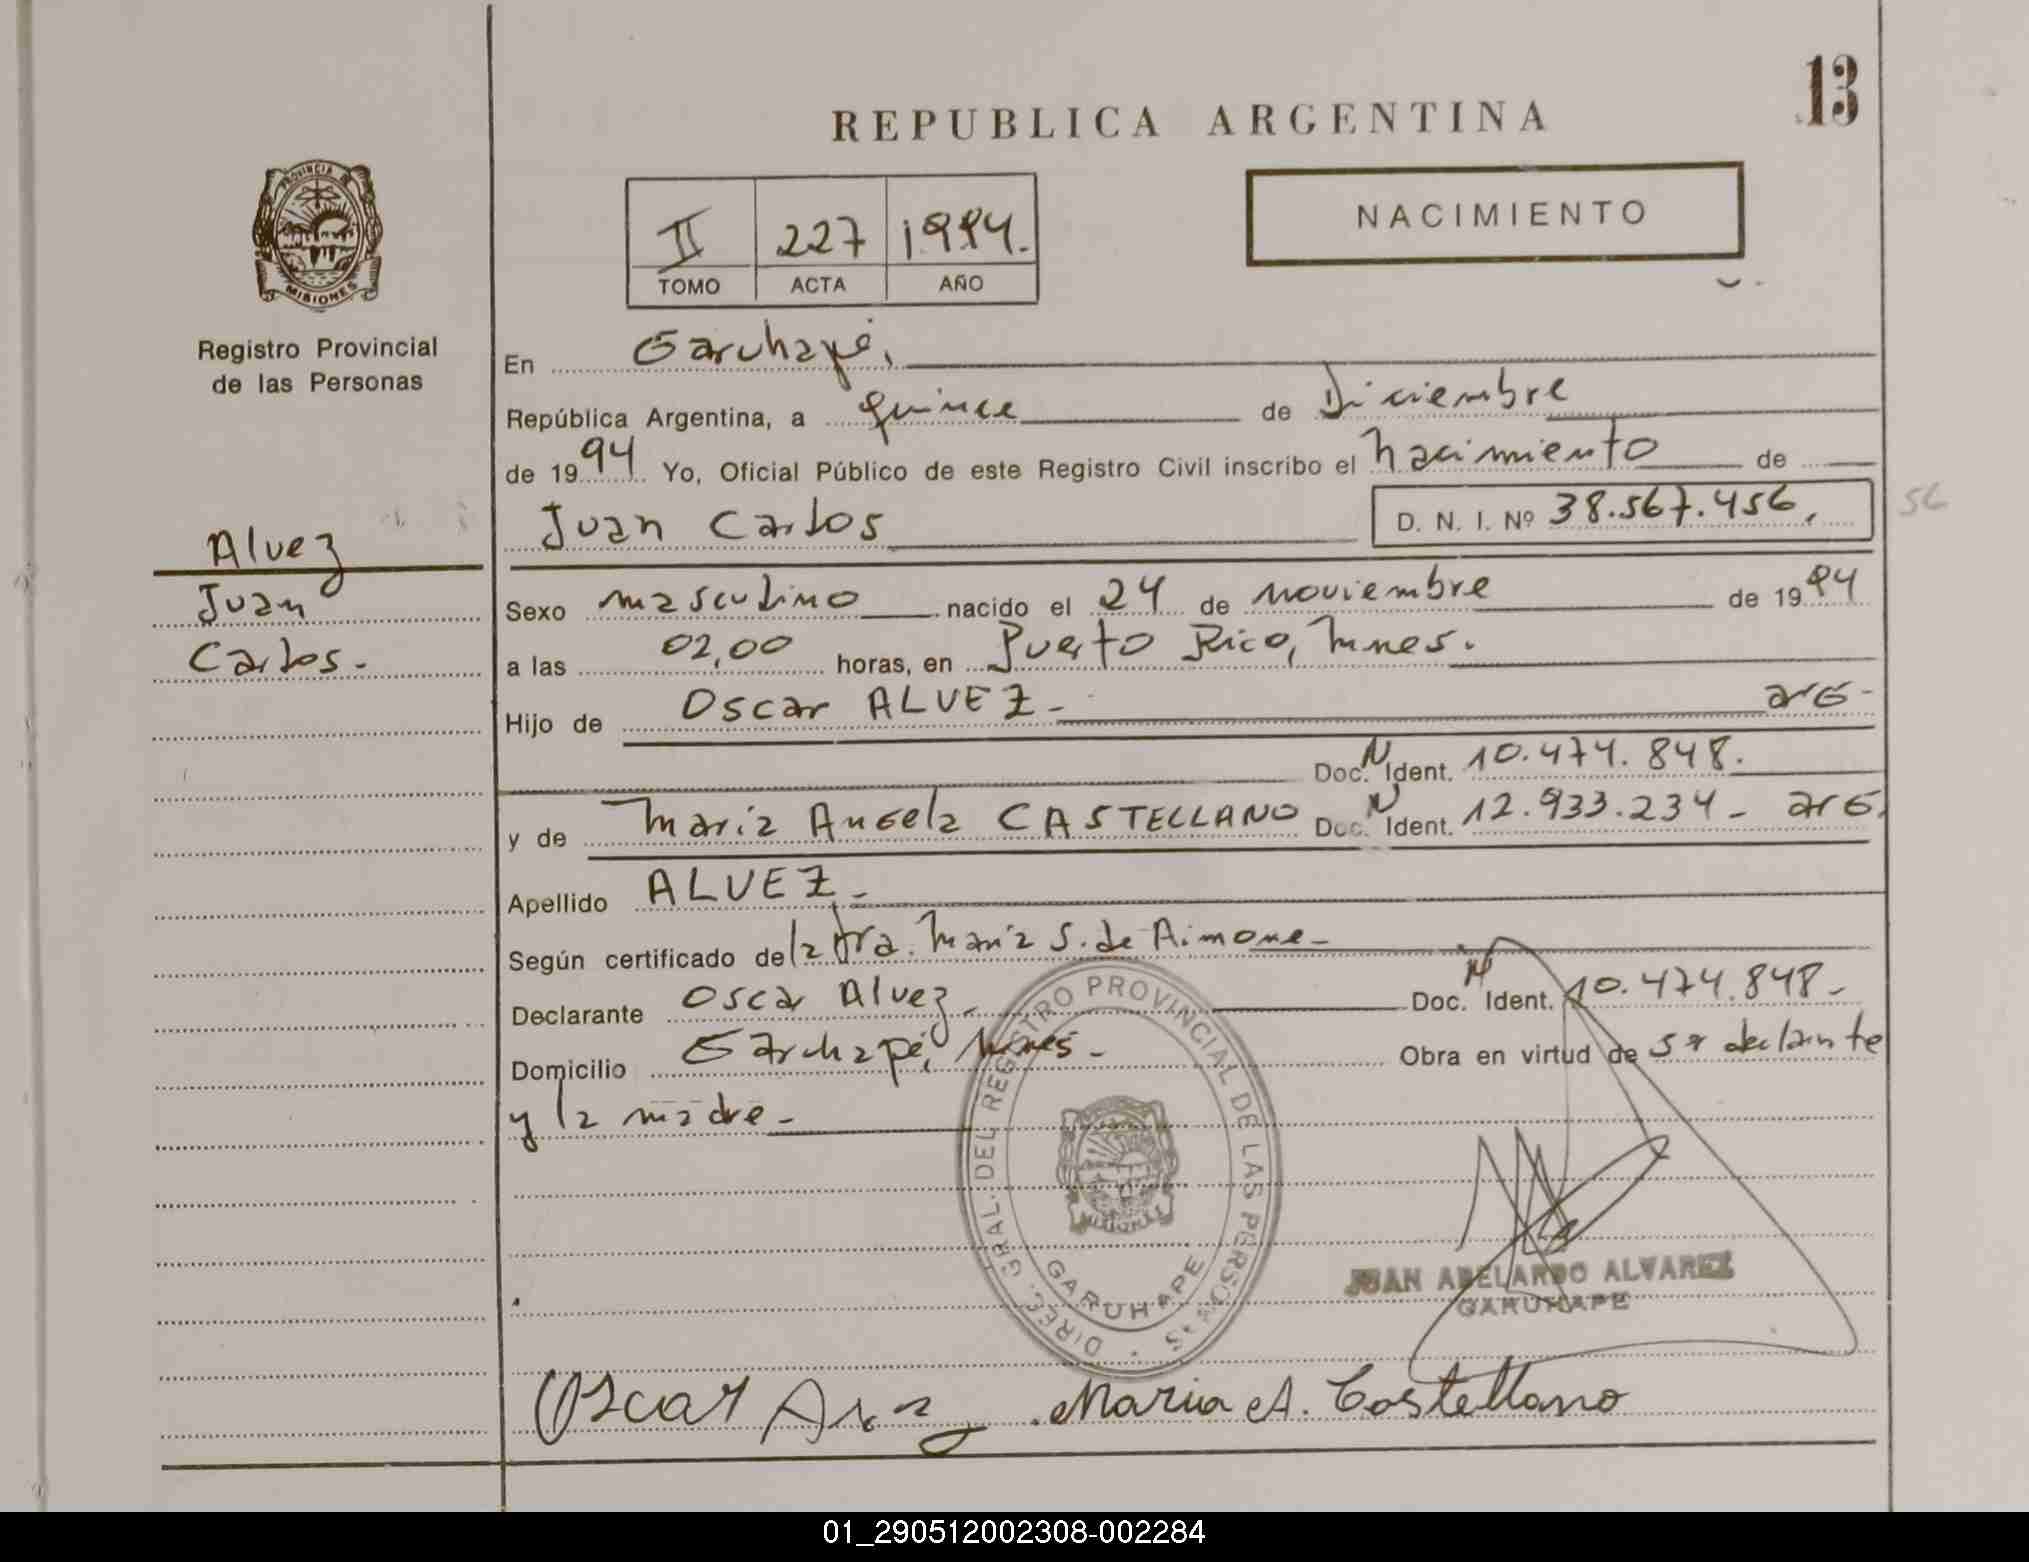 13
REPUBLICA ARGENTINA
NACIMIENTO
II 227 1994.
TOMO ACTA AÑO
PROVINCIA DE
MISIONES
Registro Provincial
de las Personas
Alvez
Juan
Carlos.-
En Garuhapé,
República Argentina, a quince de Diciembre
de 1994 Yo, Oficial Público de este Registro Civil inscribo el nacimiento de
Juan Carlos D. N. I. Nº 38.567.456. 56
Sexo masculino nacido el 24 de noviembre de 1994
a las 02,00 horas, en Puerto Rico, Mnes.
Hijo de Oscar ALVEZ.- arg-
Doc. N Ident. 10.474.848.
y de Maria Angela CASTELLANO Doc. N Ident. 12.933.234- arg.
Apellido ALVEZ.-
Según certificado de la Dra. Maria S. de Aimone-
Declarante Oscar Alvez.- Doc. N Ident. 10.474.848-
Domicilio Garuhapé, Mnes- Obra en virtud de ser declante
y la madre-
DIREC. GRAL. DEL REGISTRO PROVINCIAL DE LAS PERSONAS
MISIONES
GARUHAPE
JUAN ABELARDO ALVAREZ
GARUHAPE
Oscar Maria A. Castellano
01_290512002308-002284